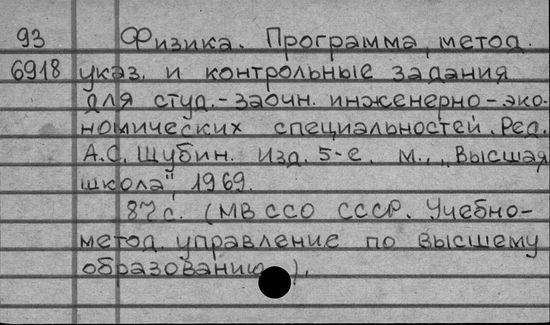 93 Физика. Программа, метод.
6918 указ. и контрольные задания
для студ.-заочн. инженерно-эко-
номических специальностей. Ред.
А.С. Шубин. Изд. 5-е. М., "Высшая
школа", 1969.
87 с. (МВ ССО СССР. Учебно-
метод. управление по высшему
образованию).